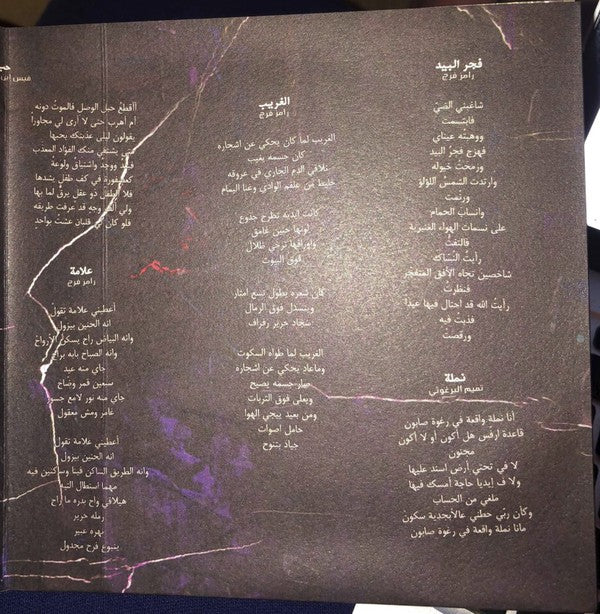 فجر البيد
رامز فرج
شاغبني الضيّ
فابتسمت
ووهبته عيناي
فهزج فجرُ البيد
ورمحتْ خيوله
وارتدت الشمسُ اللؤلؤ
ورنّمت
وانساب الحمام
على نسمات الهواء العنبرية
فالتفتُّ
رأيتُ النُسّاكه
شاخصين تجاه الأفق المتفجر
فنظرتُ
رأيتُ الله قد احتال فيها عيداً
فذبت فيه
ورقصت
نملة
تميم البرغوثي
أنا نملة واقعة في رغوة صابون
قاعدة ارفس هل أكون أو لا أكون
مجنون
لا في تحتي أرض استند عليها
ولا ف ايديا حاجة أمسك فيها
ملغي من الحساب
وكأن ربي حطني عالأبجدية سكون
مانا نملة واقعة في رغوة صابون
الغريب
رامز فرج
الغريب لما كان يحكي عن اشجاره
كان جسمه يغيب
تلاقي الدم الجاري في عروقه
خليط من علقم الوادي وغنا اليمام
كانت ايديه تطرح جذوع
لونها حنين غامق
واوراقها ترخي ظلال
فوق البيوت
كان شجره يطول تسع امتار
ويتسدل فوق الرمال
سجّاد حرير رفراف
الغريب لما طواه السكوت
وماعاد يحكي عن اشجاره
صار جسمه يصيح
ويعلى فوق التربات
ومن بعيد ييجي الهوا
حامل اصوات
جياد بتنوح
أأقطعُ حبل الوصل فالموتُ دونه
ام أهرب حتى لا أرى لي مجاوراً
يقولون ليلى عذبتك بحبها
يشتفي منك الفؤاد المعذب
ووجد واشتياق ولوعة
كعصفورة في كف طفل يشدها
فلا الطفل ذو عقل يرقّ لما بها
ولي ألف وجه قد عرفت طريقه
فلو كان لي قلبان عشتُ بواحدٍ
علامة
رامز فرج
أعطيني علامة تقول
انه الحنين بيزول
وانه البياض راح يسكن الأرواح
وانه الصباح بابه براح
جاي منه عيد
سمين قمر وضاح
جاي منه نور لامع
غامر ومش معقول
أعطيني علامة تقول
انه الحنين بيزول
وانه الطريق الساكن فينا وساكنين فيه
مهما استطال التيه
هيلاقي واح بدره ما راح
رمله حرير
نهره عبير
ينبوع فرح مجدول